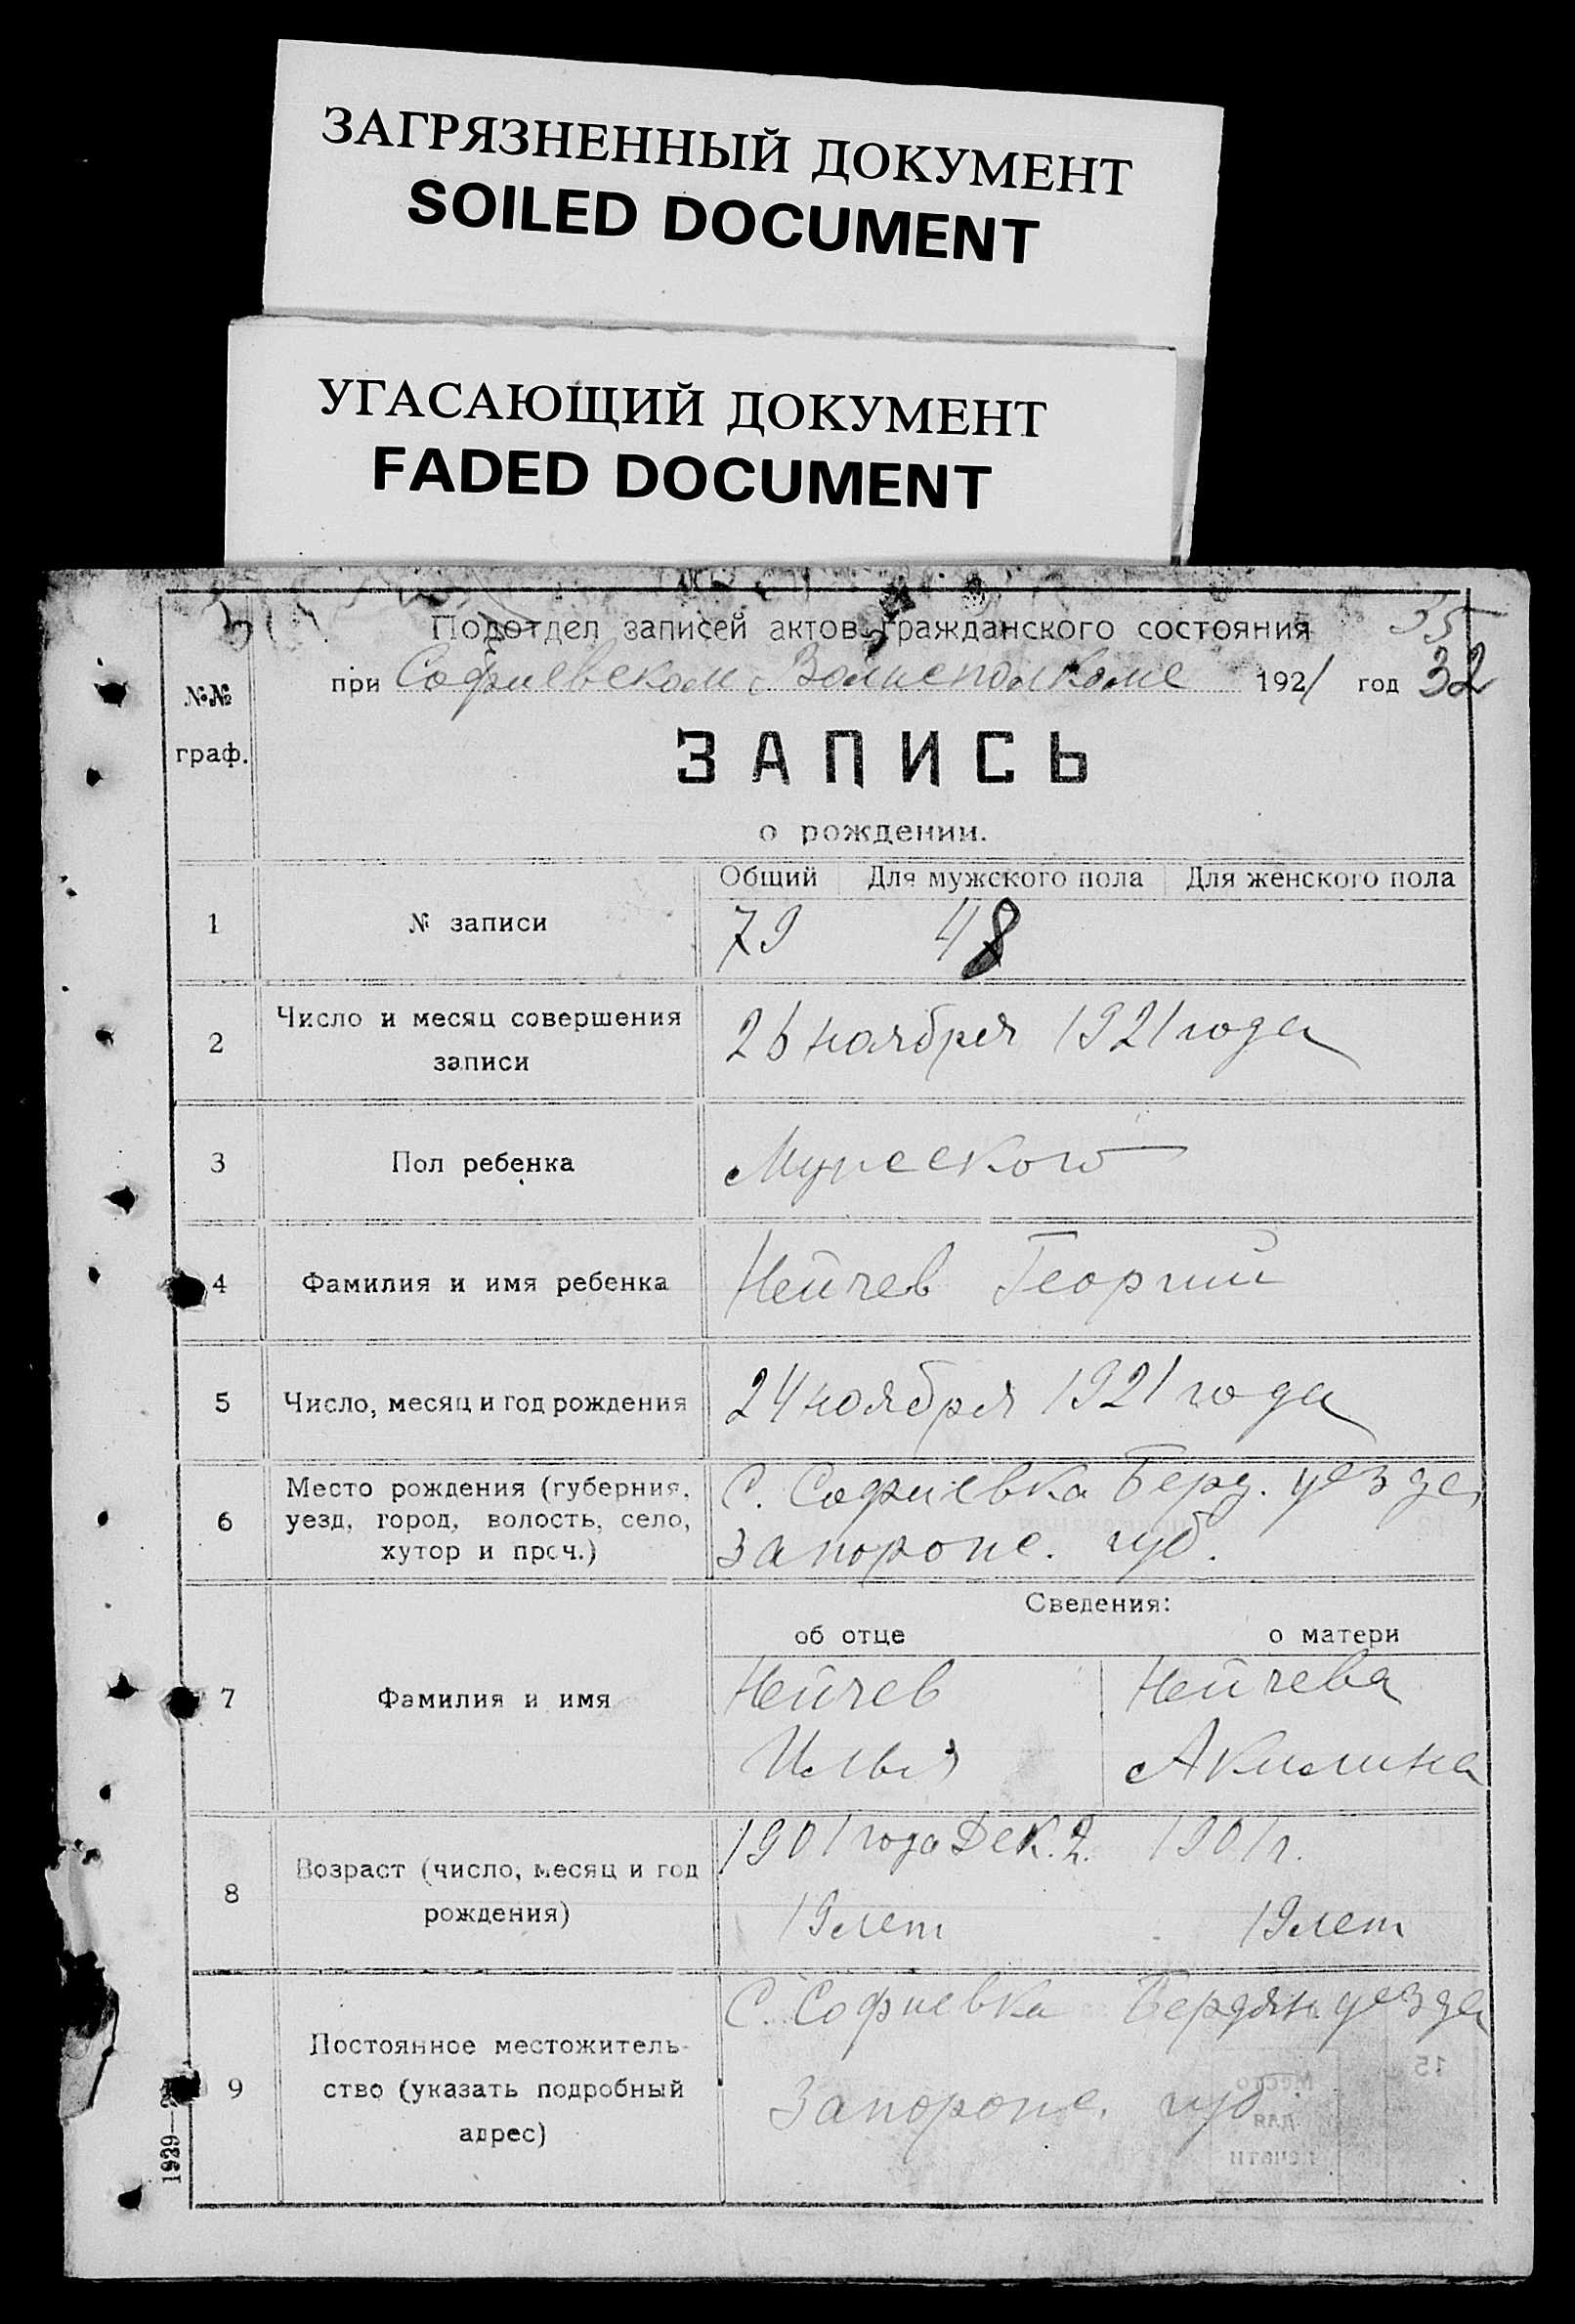 ЗАГРЯЗНЕННЫЙ ДОКУМЕНТ
SOILED DOCUMENT
УГАСАЮЩИЙ ДОКУМЕНТ
FADED DOCUMENT
35
Подотдел записей актов гражданского состояния
при Софиевском Волисполкоме 1921 год 32
№№ граф.
ЗАПИСЬ
о рождении.
Общий Для мужского пола Для женского пола
1 № записи 79 48
2 Число и месяц совершения записи 26 ноября 1921 года
3 Пол ребенка Мужского
4 Фамилия и имя ребенка Нейчев Георгий
5 Число, месяц и год рождения 24 ноября 1921 года
6 Место рождения (губерния, С. Софиевка Берд. уезда,
уезд, город, волость, село, Запорож. губ.
хутор и проч.)
Сведения:
об отце о матери
7 Фамилия и имя Нейчев Нейчева
Илья Акилина
1901 года Дек. 2. 1901 г.
8 Возраст (число, месяц и год
рождения) 19 лет 19 лет
С. Софиевка Бердян. уезда
9 Постоянное местожитель-
ство (указать подробный Запорож. губ.
адрес)
15
Место
для
печати